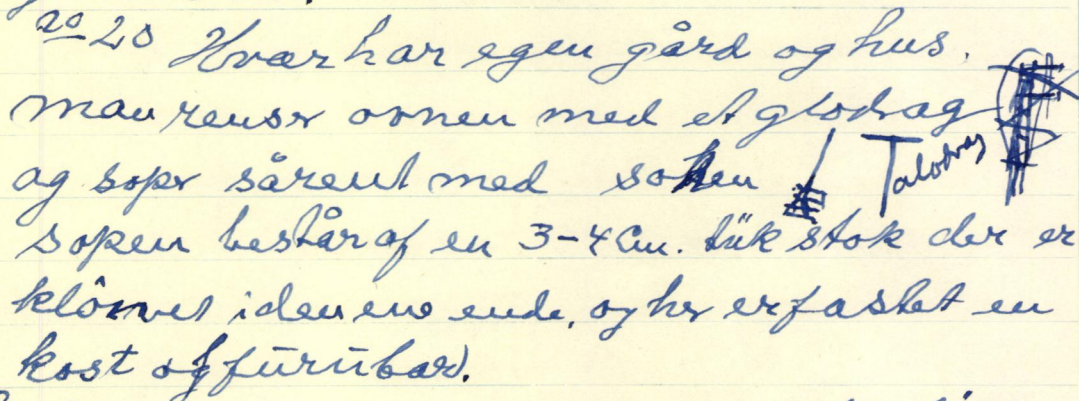 no 20 Hvær har egen gård og hus.
man renser ovnen med et glodrag
og soper sårent med sopen
Talodrag
sopen består af en 3-4 Cm. tük stok der er
klôvvet i den ene ende, og her er fastet en
kost af fürübar).